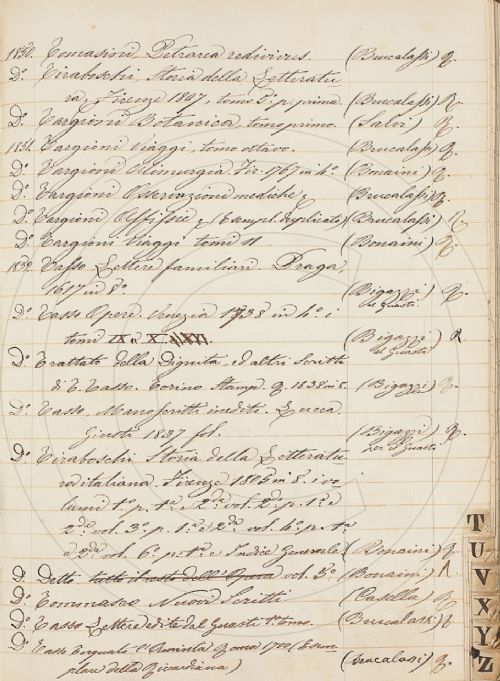 1850. Tomasini, Petrarca redivivus. (Bucalassi) R.
Do. Tiraboschi, Storia della Letteratu=
ra, Firenze 1807, tomo 5o. p. prima. (Bucalassi) R.
D. Targioni Botanica, tomo primo. (Salvi) R.
1851. Targioni Viaggi, tomo ottavo. (Bucalassi) R.
Do. Targioni Alimurgia Fir. 1767 in 4o. (Bonaini) R.
Do. Targioni Osservazioni mediche (Bucalassi) R.
Do. Targioni (Esempl. duplicato) (Bucalassi) R.
Do. Targioni Viaggi tomi 11 (Bonaini) R.
1852 Tasso Lettere familiari. Praga,
1617 in 8o (Bigazzi) R.
pel Guasti
Do. Tasso Opere Venezia 1738 in 4o. i
tomi IX e X (Bigazzi) R
pel Guasti
Do. Trattato della Dignità, ed altri scritti
di T. Tasso. Torino Stamp. R. 1838 in 8. (Bigazzi) R.
Do. Tasso, Manoscritti inediti. Lucca
Giusti 1837 fol. (Bigazzi) R.
per il Guasti
Do. Tiraboschi Storia della Letteratu=
ra italiana. Firenze 1805 in 8. i vo
lumi 1o. p. 1a e 2da vol. 2o. p. 1a e
2da vol. 3o. p. 1a e 2da vol. 4o. p. 1a
e 2da vol. 6o. p. 1a e Indice Generale (Bonaini) R.
Do. Detto tutto il resto dell'Opera vol. 5o. (Bonaini) R
Do. Tommaseo Nuovi Scritti (Casella) R.
Do. Tasso Lettere edite dal Guasti 1o. tomo. (Bucalassi) R.
Do. Tasso Torquato l'Aminta Roma 1700 (Esem
plare della Riccardiana) (Bucalassi) R.
T
U
V
X
Y
Z